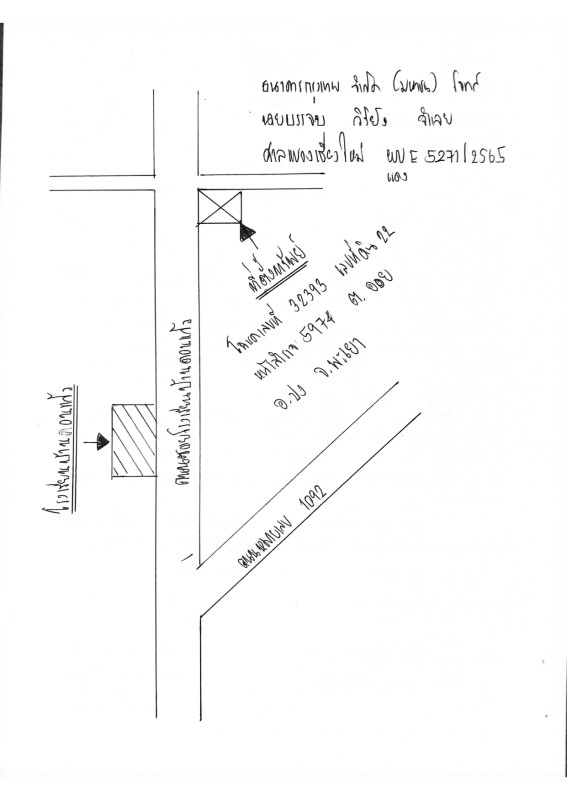 ธนาคารกรุงเทพ จำกัด (มหาชน) โจทก์
นายบรรจบ วิริยัง จำเลย
ศาลแขวงเชียงใหม่ ผบ E 5271/2565
แดง
ที่ตั้งทรัพย์
โฉนดเลขที่ 32393 เลขที่ดิน 22
หน้าสำรวจ 5974 ต. ออย
อ. ปง จ. พะเยา
ถนนซอยโรงเรียนบ้านดอนแก้ว
โรงเรียนบ้านดอนแก้ว
ถนนหมายเลข 1092